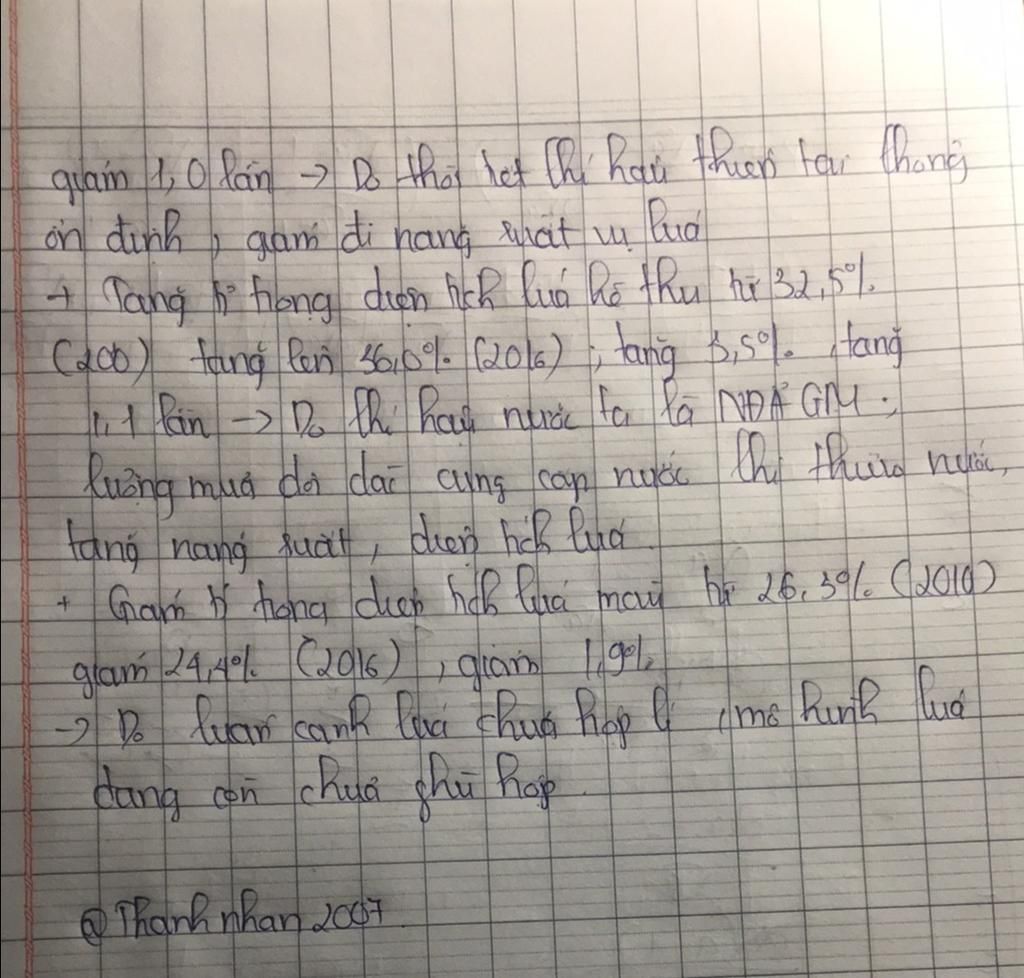 giảm 1,0 lần → Do thời tiết khí hậu thiên tai không
ổn định, giảm đi năng suất vụ lúa
+ Tăng tỉ trọng diện tích lúa hè thu từ 32,5%
tăng lên 36,0% (2016), tăng 3,5%, tăng
1,1 lần → Do khí hậu nước ta là NĐÂGM;
lượng mưa dồi dào cung cấp nước nước,
tăng năng suất, diện tích lúa
+ Giảm tỉ trọng diện tích lúa mùa từ 26,3% (2010)
giảm 24,4% (2016), giảm 1,9%
→ Do luân canh lúa chưa hợp lí, mô hình lúa
đang còn chưa phù hợp.
@Thanhnhan2007